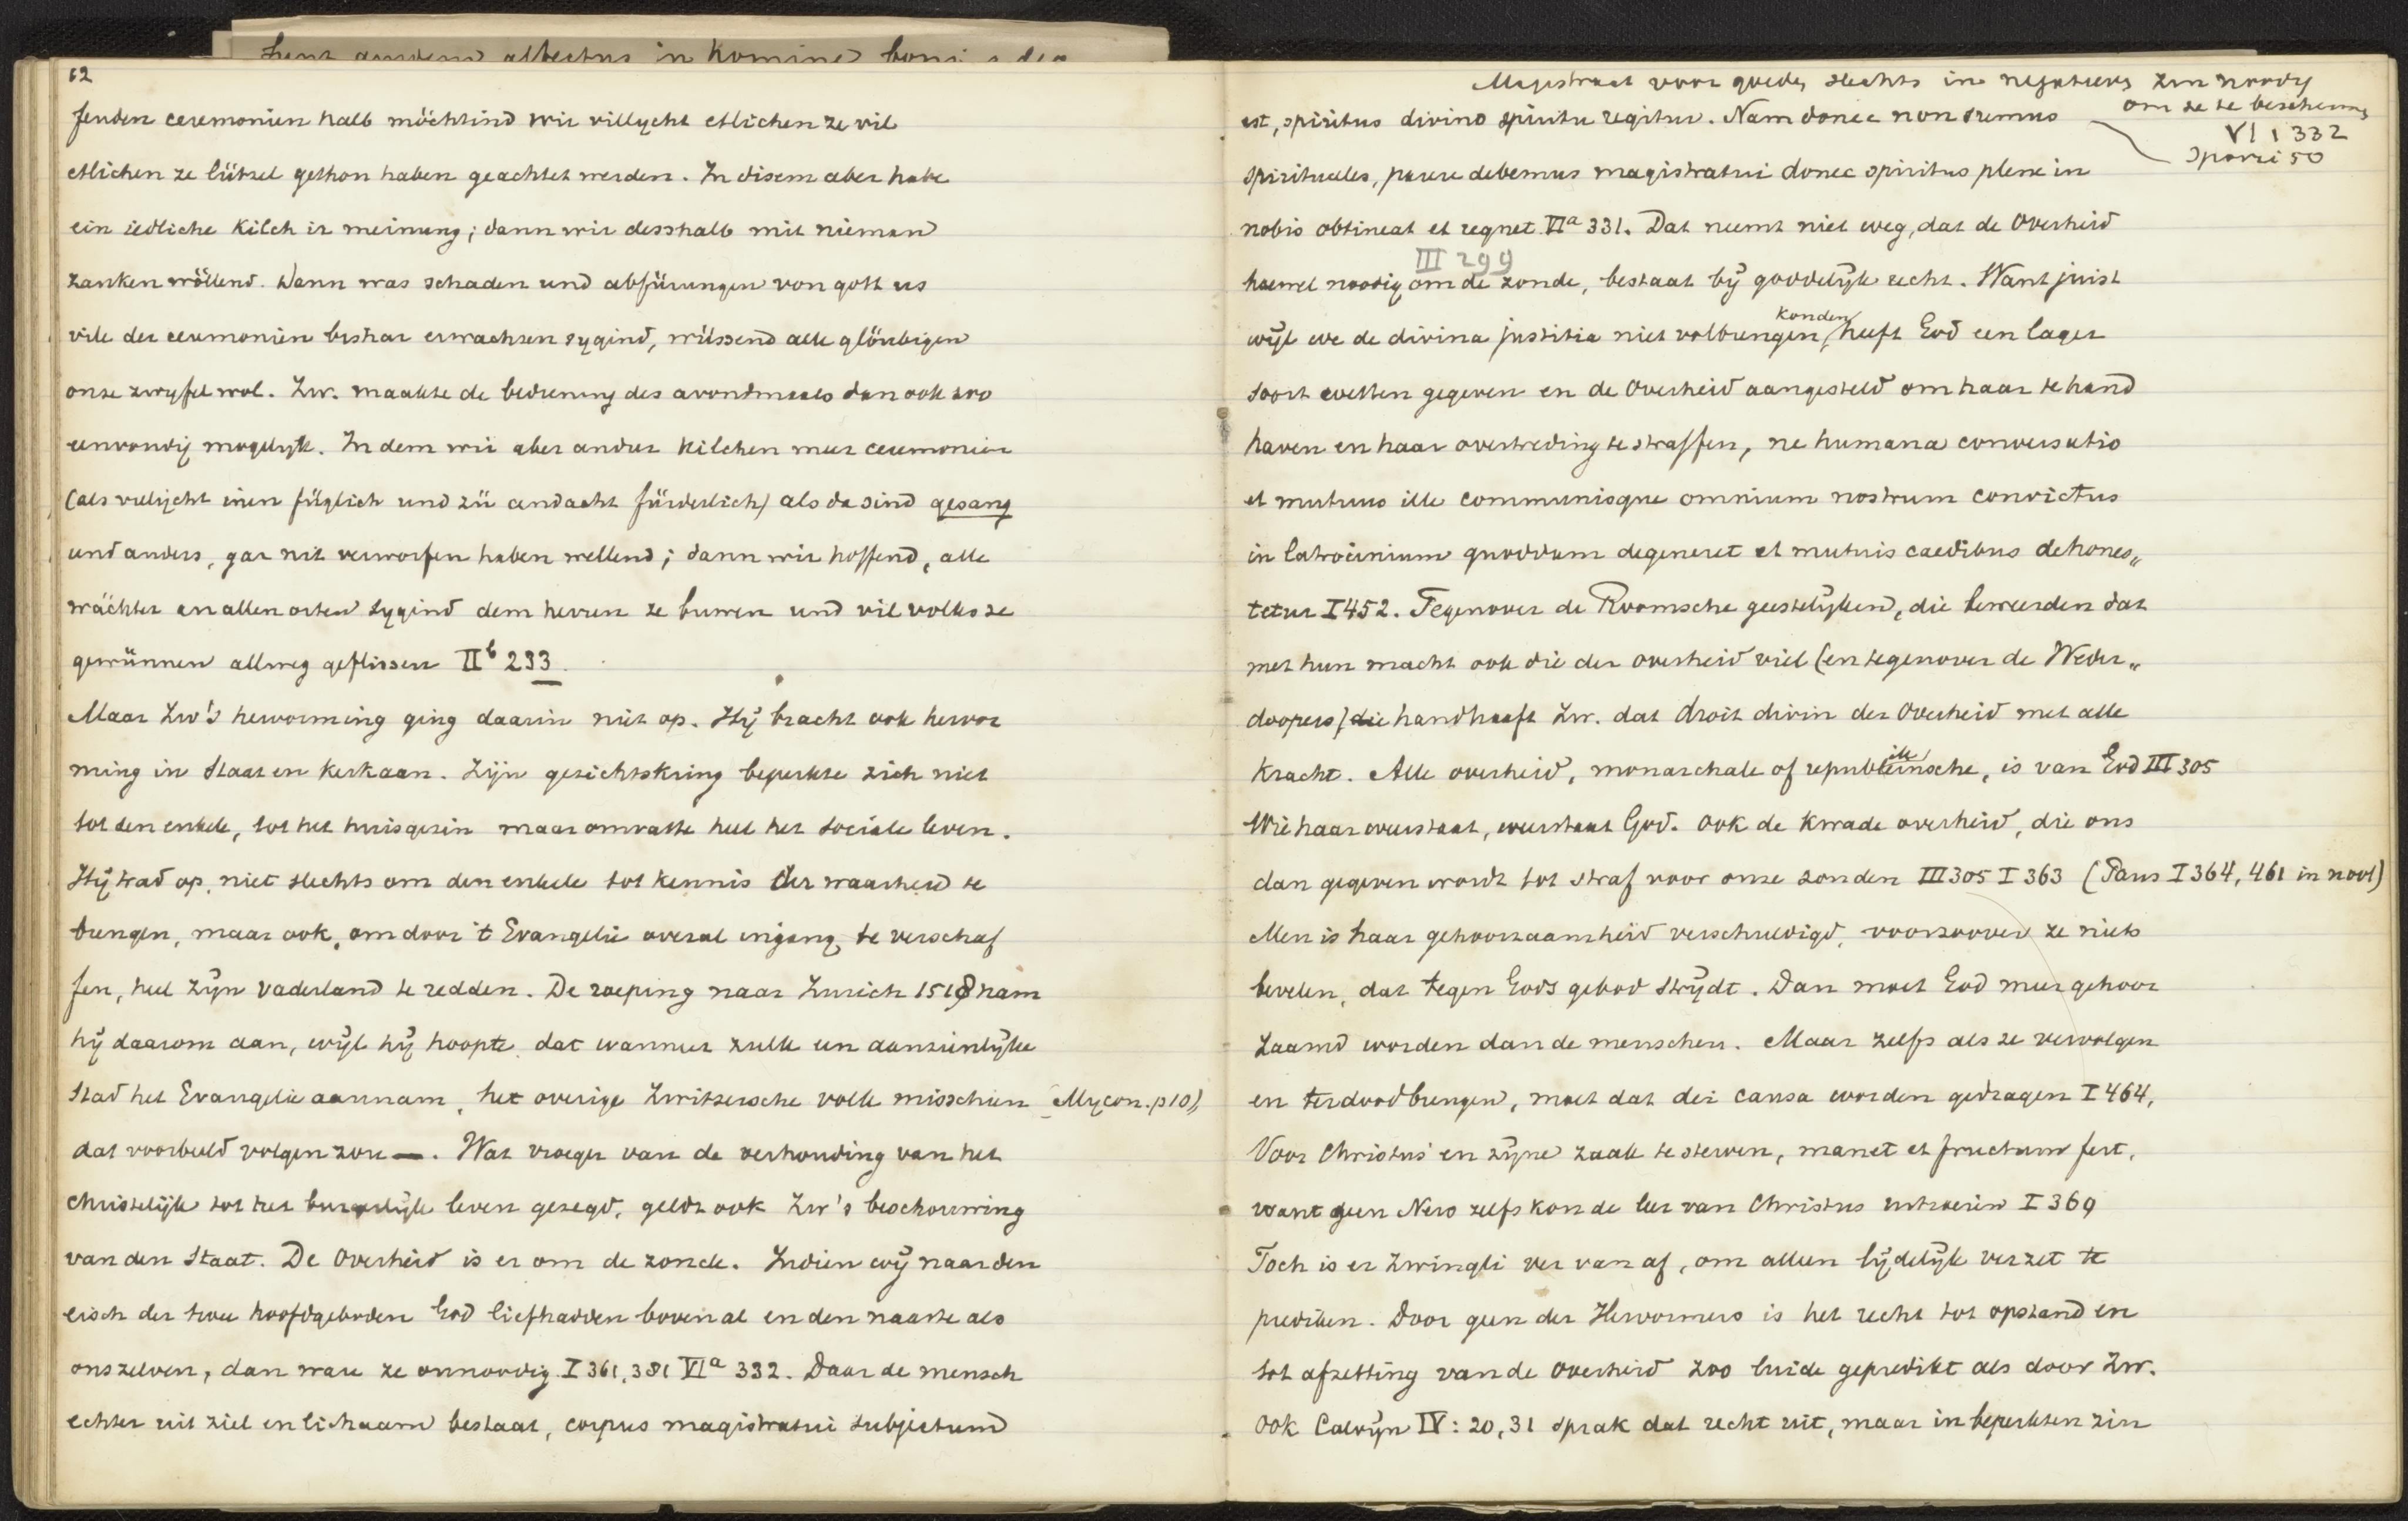 62
fenden ceremonien halb möchtind wir villycht etlichen ze vil
etlichen ze lützel gethon haben geachtet werden. In disem aber habe
ein iedliche kilch ir meinung; dann wir desshalb mit nieman
zanken wöllend. Wenn was schaden und abfürungen von gott us
vile der ceremonien bishar erwachsen sygind, wüssend alle glöubigen
onse zwyfel wol. Zw. maakte de bediening des avondmaals dan ook zoo
eenvoudig mogelyk. In dem wir aber andrer kilchen meer ceremonien
(als villycht inen füglich und zü andacht fürderlich) als da sind gesang
und anders, gar nit verworfen haben wellend; dann wir hoffend, alle
wächter an allen orten sygind dem herren ze buwen und vil volks ze
gewünnen allweg geflissen IIb 233.
Maar Zw's hervorming ging daarin niet op. Hij bracht ook hervor
ming in Staat en Kerk aan. Zijn gezichtskring beperkte zich niet
tot den enkele, tot het huisgezin maar omvatte heel het sociale leven.
Hij trad op, niet slechts om den enkele tot kennis der waarheid te
brengen, maar ook, om door 't Evangelie overal ingang te verschaf
fen, heel zijn vaderland te redden. De roeping naar Zurich 1518 nam
hij daarom aan, wijl hij hoopte, dat wanneer zulk een aanzienlijke
Stad het Evangelie aannam, het overige Zwitsersche volk misschien (Mycon. p 10),
dat voorbeeld volgen zou —. Wat vroeger van de verhouding van het
christelijk tot het burgerlijk leven gezegd, geldt ook Zw's beschouwing
van den Staat. De Overheid is er om de zonde. Indien wij naar den
eisch der twee hoofdgeboden God liefhadden bovenal en den naaste als
onszelven, dan ware ze onnoodig I 361, 381 VIa 332. Daar de mensch
echter uit ziel en lichaam bestaat, corpus magistratui subjectum
Magistraat voor goede, slechts in negatieven zin noodig
om ze te beschermen
VI 1 332
Sporri 50
est, spiritus divino spiritu regitur. Nam donec non sumus
spirituales, parere debemus magistratui donec spiritus plene in
nobis obtineat et regnet VIa 331. Dat neemt niet weg, dat de Overheid
III 299
hoewel noodig om de zonde, bestaat bij goddelijk recht. Want juist
konden
wijl we de divina justitia niet volbrengen, heeft God een lager
soort wetten gegeven en de Overheid aangesteld om haar te hand
haven en haar overtreding te straffen, ne humana conversatio
et mutuus ille communisque omnium nostrum convictus
in latrocinium quoddam degeneret et mutuis caedibus dehones„
tetur I 452. Tegenover de Roomsche geestelijken, die beweerden dat
met hun macht ook die der overheid viel (en tegenover de Weder„
doopers) die handhaaft Zw. dat droit divin der Overheid met alle
kracht. Alle overheid, monarchale of republikeinsche, is van God III 305
Wie haar weerstaat, weerstaat God. Ook de kwade overheid, die ons
dan gegeven wordt tot straf voor onze zonden III 305 I 363 (Paus I 364, 461 in noot)
Men is haar gehoorzaamheid verschuldigd, voorzoover ze niets
bevelen, dat tegen Gods gebod strijdt. Dan moet God meer gehoor
zaamd worden dan de menschen. Maar zelfs als ze vervolgen
en terdoodbrengen, moet dat dei causa worden gedragen I 464,
Voor Christus en zijne zaak te sterven, manet et fructum fert,
want geen Nero zelfs kon de leer van Christus uitroeien I 369
Toch is er Zwingli ver van af, om alleen lijdelijk verzet te
prediken. Door geen der Hervormers is het recht tot opstand en
tot afzetting van de Overheid zoo luide gepredikt als door Zw.
Ook Calvijn IV: 20,31 sprak dat recht uit, maar in beperkten zin